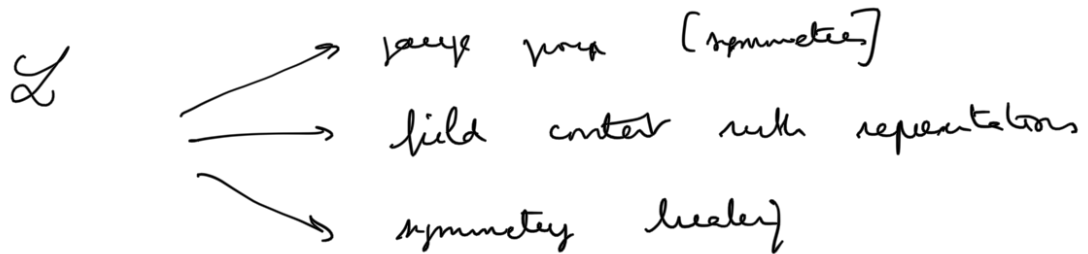 ℒ
gauge group [symmetries]
field content with representations
symmetry breaking